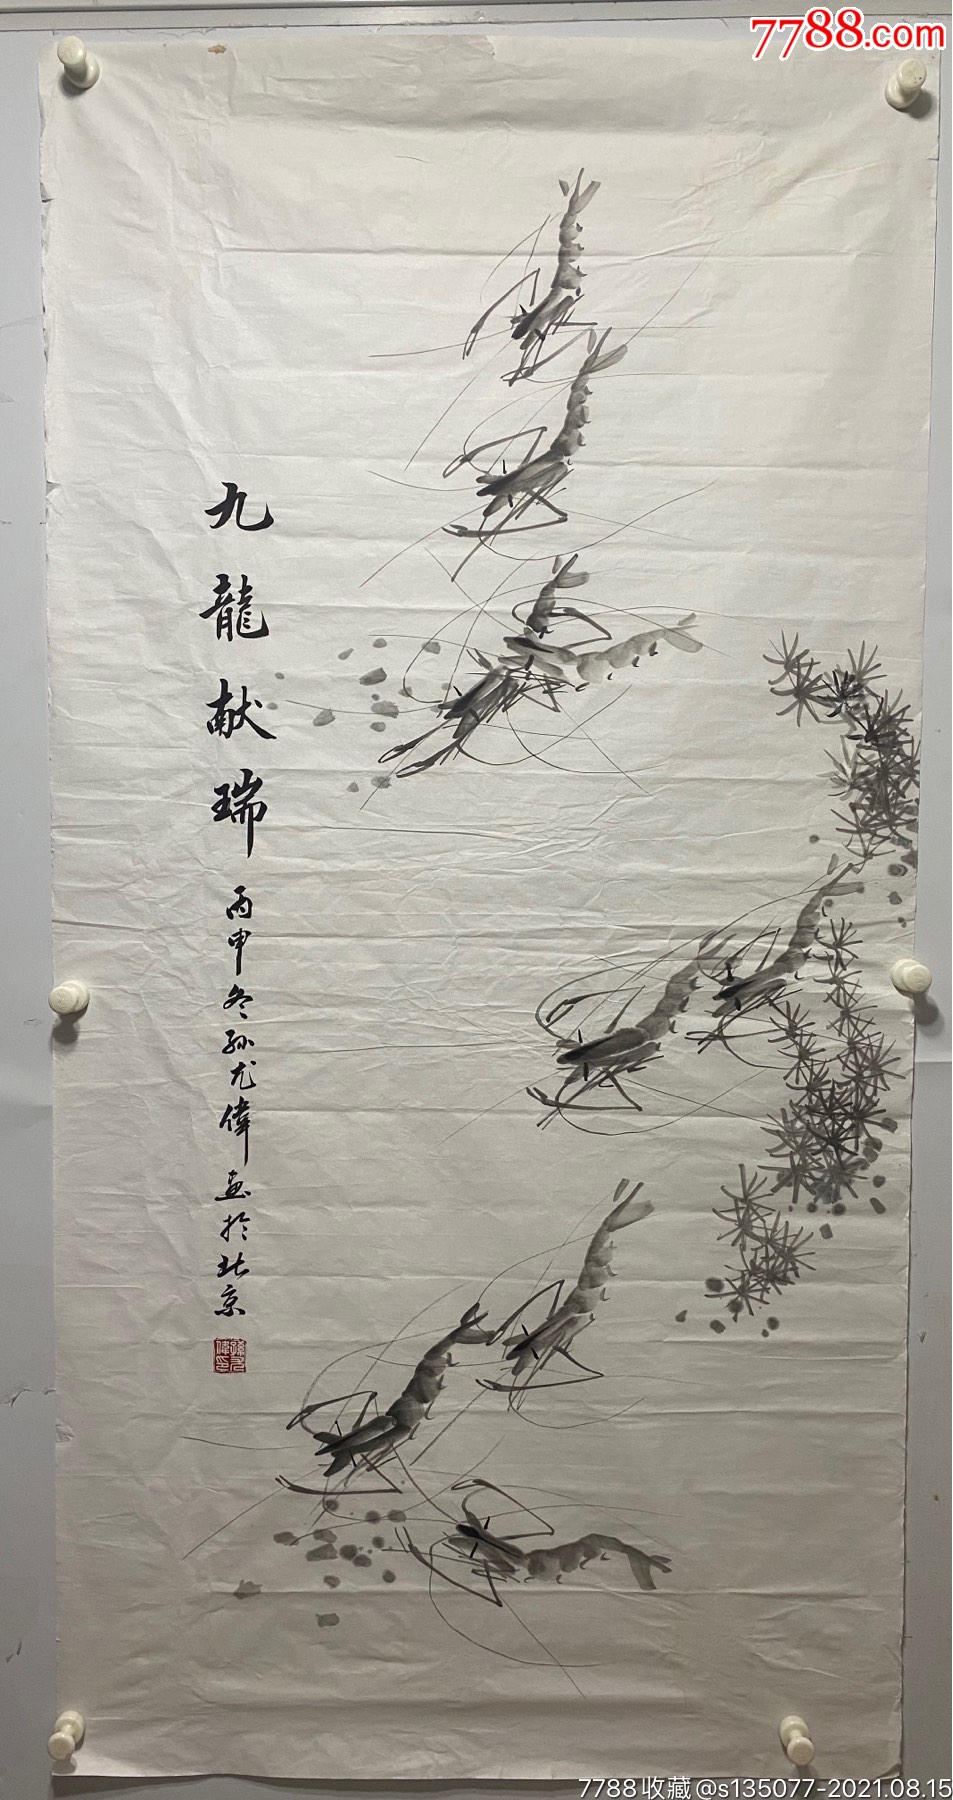 7788.com
九龍献瑞
丙申冬孙尤偉画於北京
7788收藏@s135077-2021.08.15